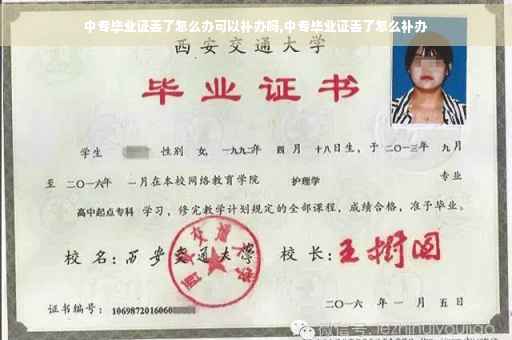 中专毕业证丢了怎么办可以补办吗,中专毕业证丢了怎么补办
西安交通大学
毕业证书
学生 性别 女, 一九九二年 四 月 十八日生, 于 二〇一三年 九月
至 二〇一六年 一月在本校网络教育学院 护理学 专业
高中起点专科 学习, 修完教学计划规定的全部课程, 成绩合格, 准予毕业。
校 名: 西安交通大学 校 长: 王树国
西安交通大学
证书编号: 1069872016060
二〇一六 年 一 月 五 日
微信号: jiezhinuiyoujiao